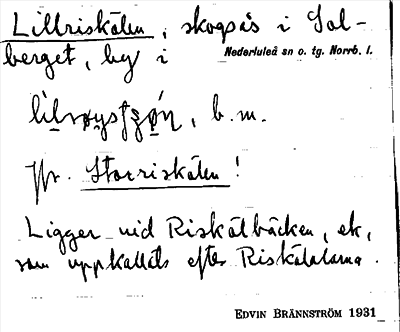 Lillriskälen, skogsås i Sol-
berget, by i Nederluleå sn o. tg. Norrb. l.
b. m.
Jfr. Storriskälen!
Ligger vid Riskälbäcken, ek,
som uppkallats efter Riskälarna.
EDVIN BRÄNNSTRÖM 1931